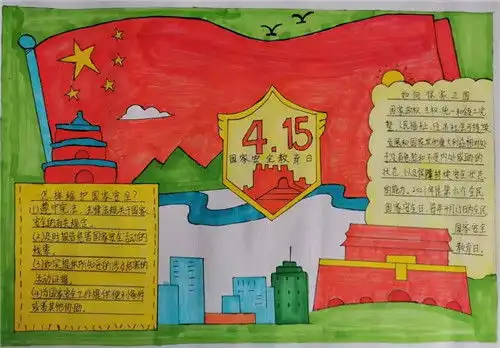 4.15
国家安全教育日
怎样维护国家安全?
(1)遵守宪法、法律法规关于国家
安全的有关规定。
(2)及时报告危害国家安全活动的
线索。
(3)如实提供所知悉的涉及危害的
活动证据。
(4)为国家安全工作提供便利条件
或者其他协助。
如何保家卫国
国家政权、主权、统一和领土完
整、人民福祉、经济社会可持续
发展和国家其他重大利益相对处
于没有危险和不受内外威胁的
状态,以及保障持续安全状态
的能力。2021年是第六个全民
国家安全日,每年4月15日为全民
国家安全
教育日。